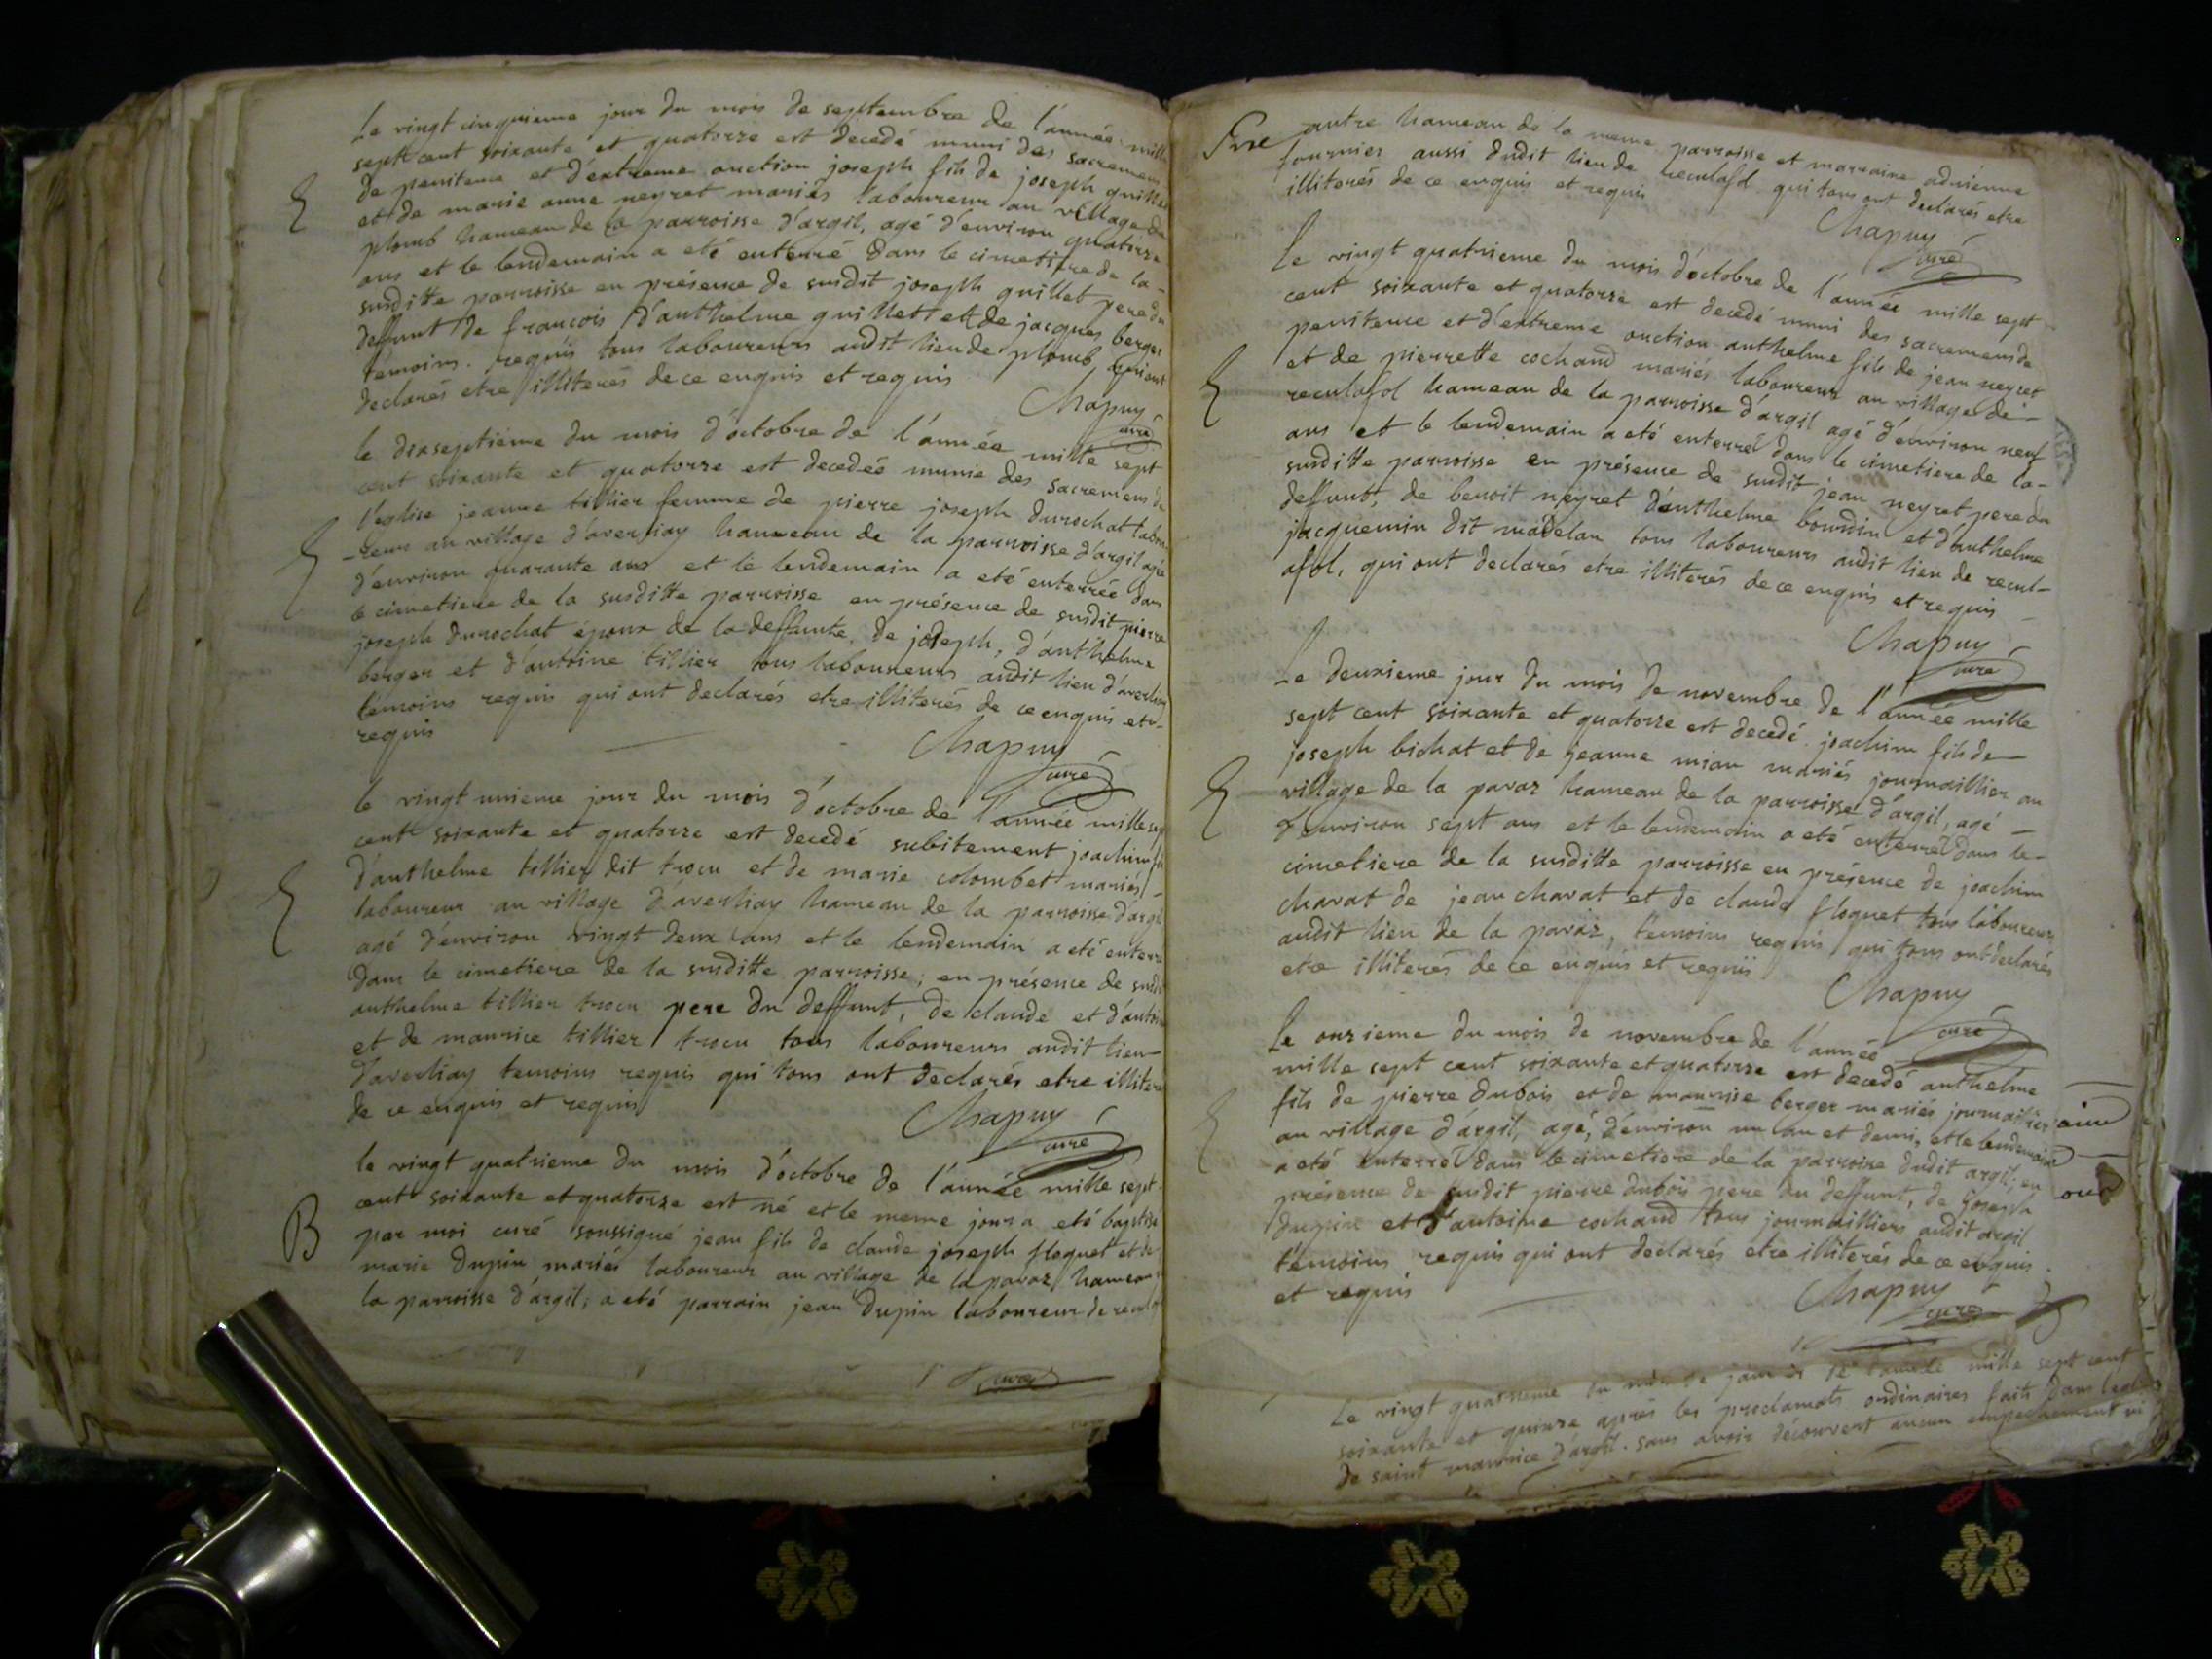 Le vingt cinquieme jour du mois de septembre de l'année mille
sept cent soixante et quatorze est decedé muni des sacremens
de penitence et d'extreme onction joseph fils de joseph guillet
E
et de marie anne neyret mariés laboureur au village de
plomb hameau de la parroisse d'argil, agé d'environ quatorze
ans et le lendemain a eté enterré dans le cimetiere de la-
susditte parroisse en présence de susdit joseph guillet pere du
deffunt de francois d'anthelme guillet et de jacques berger
temoins requis tous laboureurs audit lieu de plomb, qui ont
declarés etre illiterés de ce enquis et requis
Chapuy
curé
le dixseptieme du mois d'octobre de l'année mille sept
cent soixante et quatorze est decedée munie des sacremens de
l'eglise jeanne tillier femme de pierre joseph durochat labou
E
-reur au village d'averliay hameau de la parroisse d'argil agée
d'environ quarante ans et le lendemain a eté enterrée dans
le cimetiere de la susditte parroisse en présence de susdit pierre
joseph durochat époux de la deffunte, de joseph, d'anthelme
berger et d'antoine tillier tous laboureurs audit lieu d'averliay
témoins requis qui ont declarés etre illiterés de ce enquis et-
requis
Chapuy
curé
le vingt unieme jour du mois d'octobre de l'année mille sep
cent soixante et quatorze est decedé subitement joachim fils
E
d'anthelme tillier dit trocu et de marie colombet mariés
laboureur au village d'averliay hameau de la parroisse d'argil
agé d'environ vingt deux ans et le lendemain a eté enterré
dans le cimetiere de la susditte parroisse; en présence de susdi
anthelme tillier trocu pere du deffunt, de claude et d'antoin
et de maurice tillier trocu tous laboureurs audit lieu-
d'averliay temoins requis qui tous ont declarés etre illiteré
de ce enquis et requis
Chapuy
curé
le vingt quatrieme du mois d'octobre de l'année mille sept
cent soixante et quatorze est né et le meme jour a eté baptisé
B
par moi curé soussigné jean fils de claude joseph floquet et de
marie dupin mariés laboureur au village de la pavaz hameau
la parroisse d'argil; a eté parrain jean dupin laboureur de recul
curé
autre hameau de la meme parroisse et marraine adrienne
fournier aussi dudit lieu de reculafol qui tous ont declarés etre
illiterés de ce enquis et requis
Chapuy
curé
Le vingt quatrieme du mois d'octobre de l'année mille sept
cent soixante et quatorze est decedé muni des sacremens de
penitence et d'extreme onction anthelme fils de jean neyret
E
et de pierrette cochand mariés laboureur au village de-
reculafol hameau de la parroisse d'argil agé d'environ neuf
ans et le lendemain a eté enterré dans le cimetiere de la-
susditte parroisse en présence de susdit jean neyret pere du
deffunt, de benoit neyret d'anthelme bourdin et d'anthelme
jacquemin dit madelan tous laboureurs audit lieu de recul-
afol, qui ont declarés etre illiterés de ce enquis et requis
Chapuy
curé
Le deuxieme jour du mois de novembre de l'année mille
sept cent soixante et quatorze est decedé joachim fils de-
joseph bichat et de jeanne mian mariés journaillier au
E
village de la pavaz hameau de la parroisse d'argil, agé-
d'environ sept ans et le lendemain a eté enterré dans le-
cimetiere de la susditte parroisse en présence de joachim
charat de jean charat et de claude floquet tous laboureurs
audit lieu de la pavaz, témoins requis qui tous ont declarés
etre illiterés de ce enquis et requis
Chapuy
curé
Le onzieme du mois de novembre de l'année
mille sept cent soixante et quatorze est decedé anthelme
E
fils de pierre dubois et de maurise berger mariés journaillier
au village d'argil, agé, d'environ un an et demi, et le lendemain
a eté enterré dans le cimetiere de la parroisse dudit argil; en
présence de susdit pierre dubois pere du deffunt, de joseph
dupin et d'antoine cochand tous journailliers audit argil
témoins requis qui ont declarés etre illiterés de ce enquis
et requis
Chapuy
curé
Le vingt quatrieme du mois de janvier de l'année mille sept cent
soixante et quinze après les proclamats ordinaires faits dans l'eglise
de saint maurice d'argil. sans avoir découvert aucun empechement ni